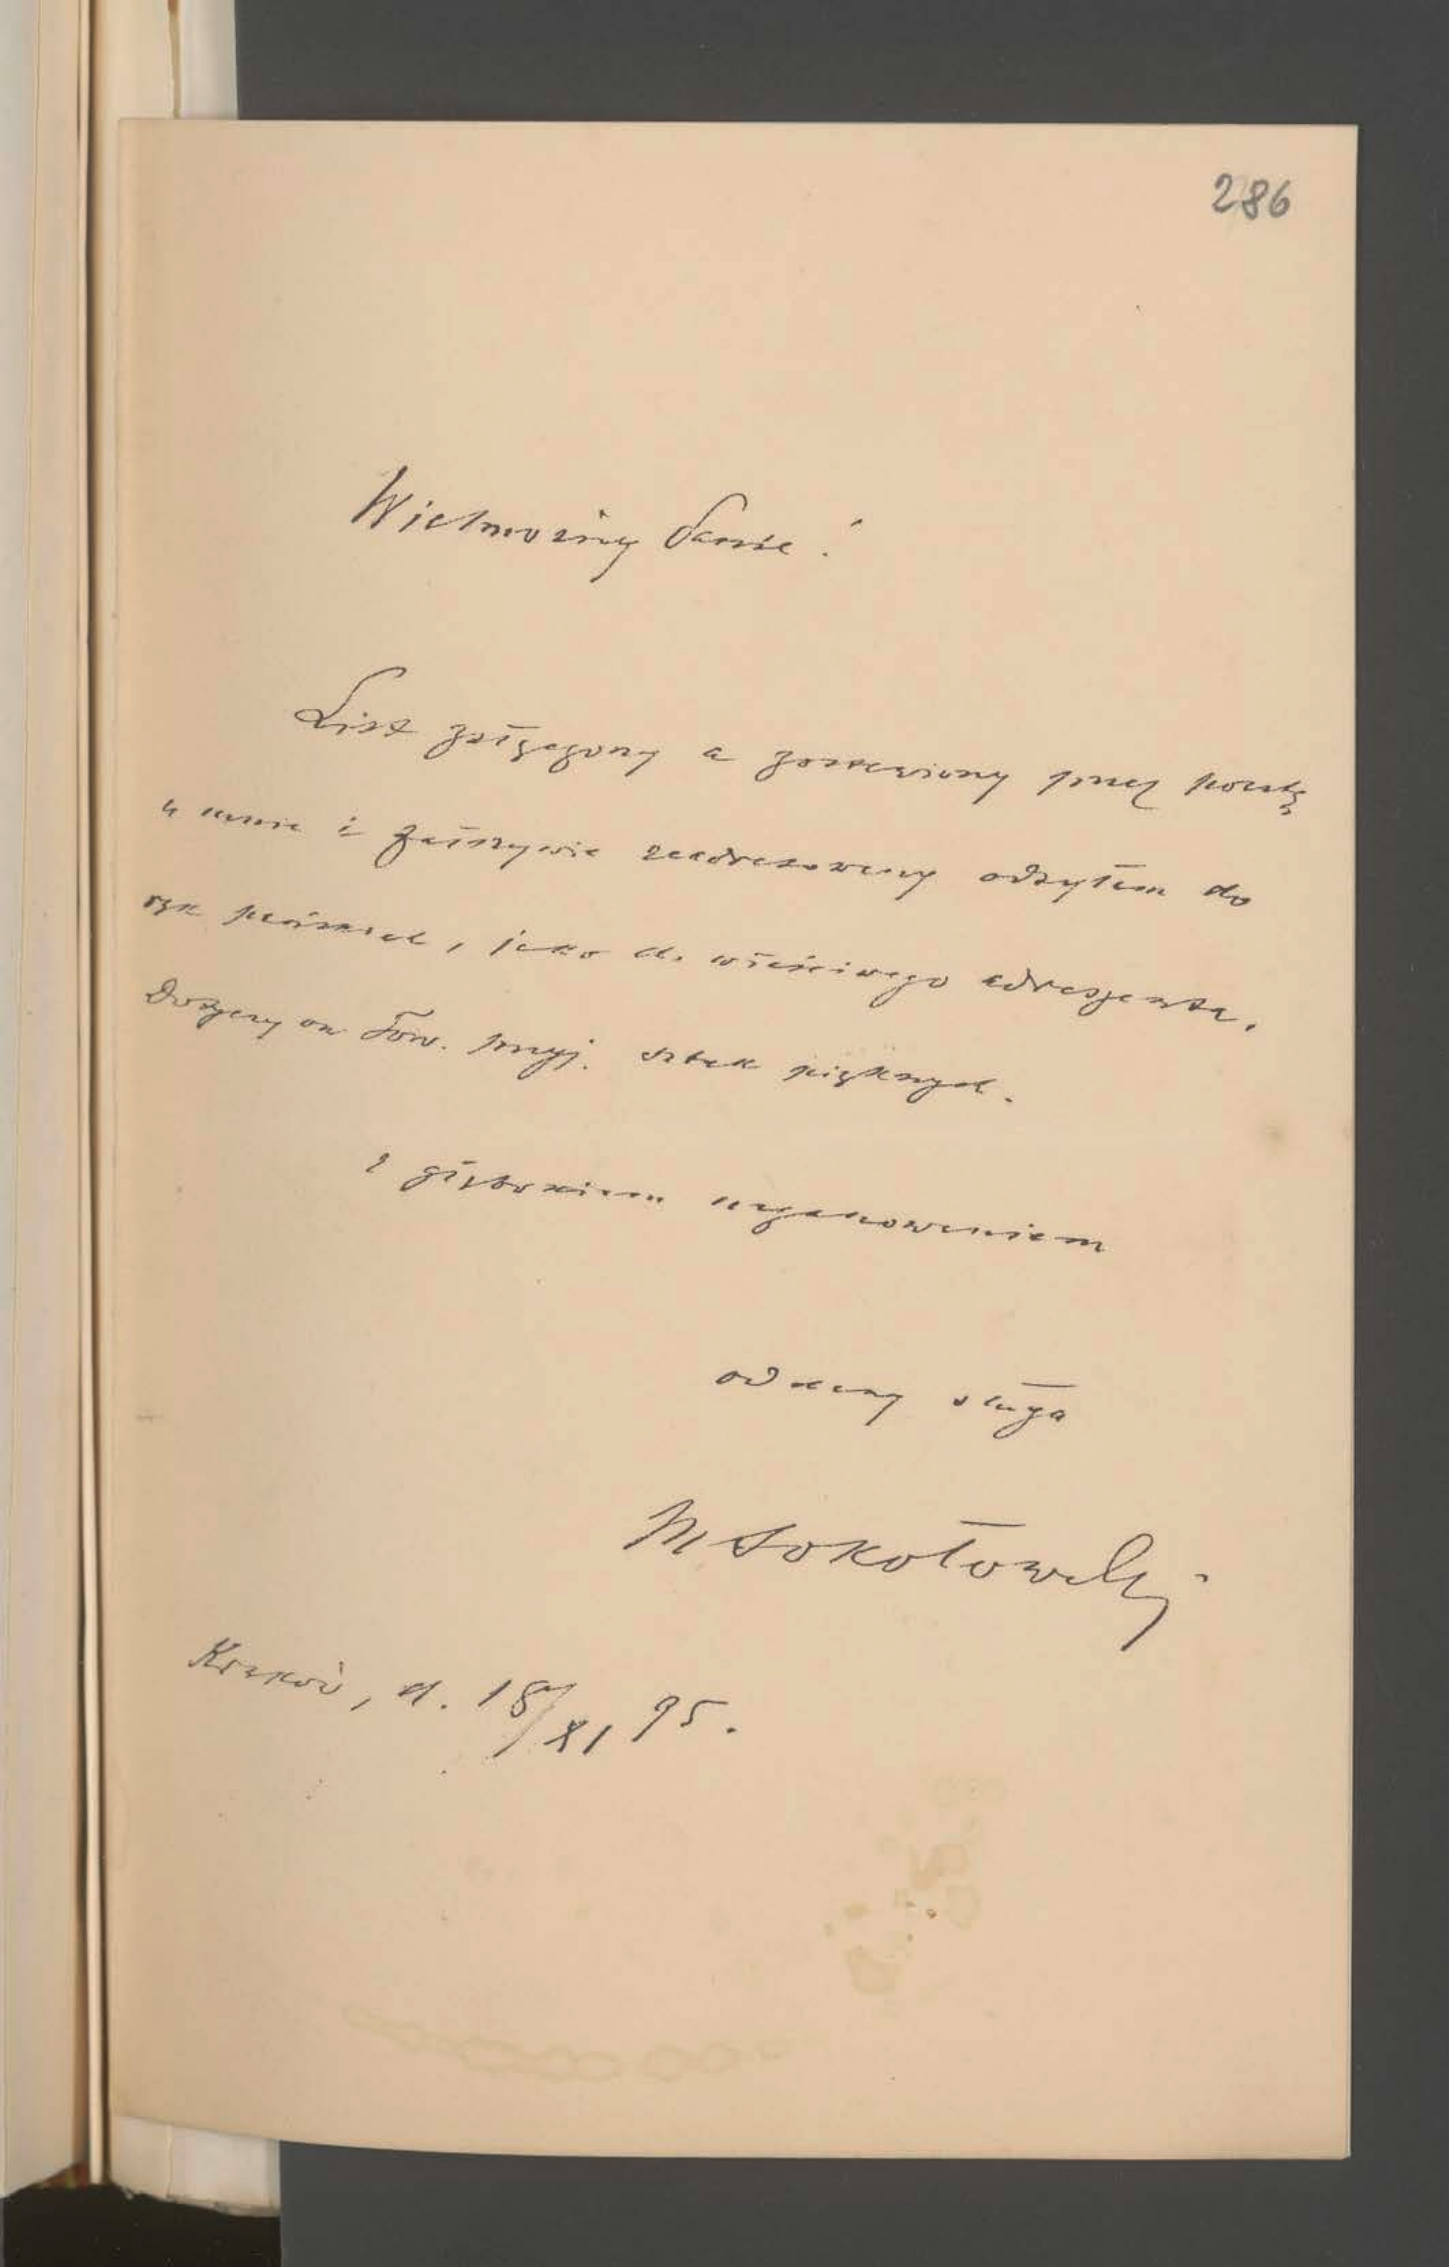 286
Wielmożny Panie!
List załączony a zostawiony przez pocztę
u mnie i fałszywie zaadresowany odsyłam do
rąk pańskich, jako do właściwego adresata.
Dotyczy on Tow. przyj. sztuk pięknych.
z głębokiem uszanowaniem
oddany sługa
M Sokołowski
Kraków, d. 18/XI 95.